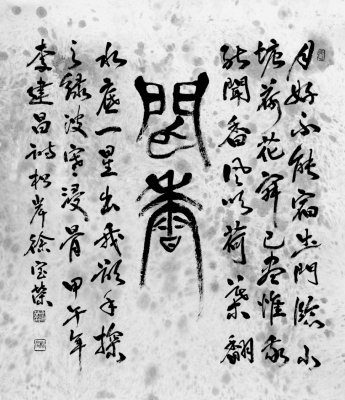 月好不能宿出門臨小
塘荷花開已尽惟我
能聞香風吹荷葉翻
聞香
水底一星出我欲手探
之綠波寒浸骨甲午年
李建昌詩松岸徐宝榮